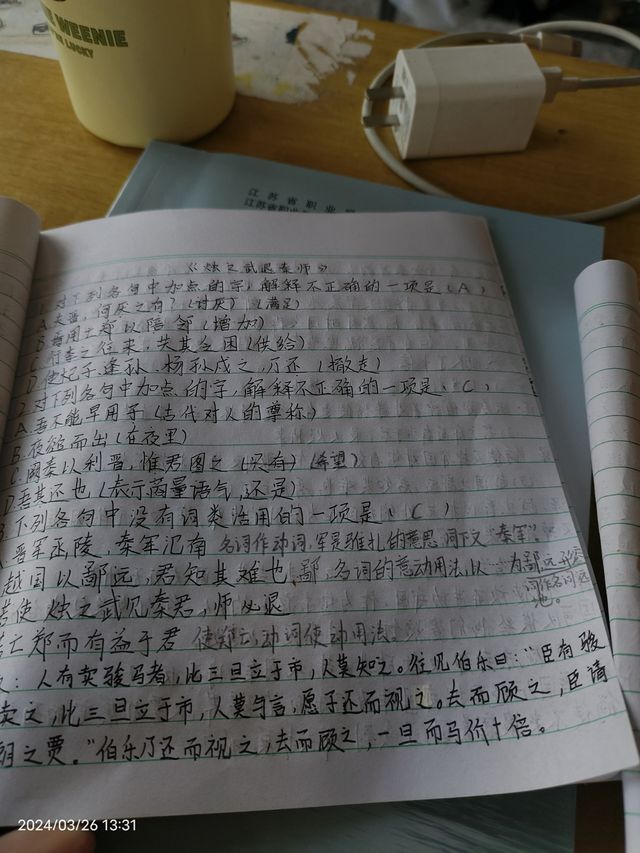 WEENIE
LUCKY
江苏省职业
江苏省职业
《烛之武退秦师》
1.对下列各句中加点的字,解释不正确的一项是(A)
A.夫晋,何厌之有?(讨厌)(满足)
B.焉用亡郑以陪邻(增加)
C.行李之往来,共其乏困(供给)
D.使杞子、逢孙、杨孙戍之,乃还(撤走)
2.对下列各句中加点的字,解释不正确的一项是(C)
A.吾不能早用子(古代对人的尊称)
B.夜缒而出(在夜里)
C.阙秦以利晋,惟君图之(只有)(希望)
D.吾其还也(表示商量语气,还是)
3.下列各句中没有词类活用的一项是(C)
晋军函陵,秦军氾南 名词作动词,军是驻扎的意思,同下文"秦军"。
越国以鄙远,君知其难也 鄙,名词的意动用法,以…为鄙 远,形容词作名词 远地。
若使烛之武见秦君,师必退
亡郑而有益于君 使郑亡,动词使动用法。
:人有卖骏马者,比三旦立于市,人莫知之。往见伯乐曰:"臣有骏
卖之,比三旦立于市,人莫与言,愿子还而视之。去而顾之,臣请
朝之贾。"伯乐乃还而视之,去而顾之,一旦而马价十倍。
2024/03/26 13:31